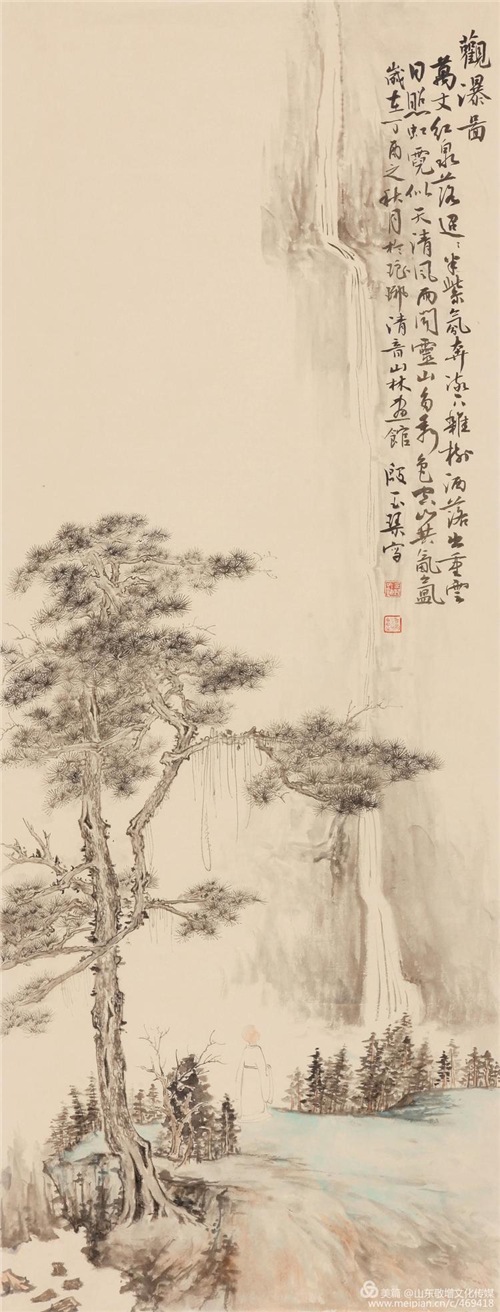 觀瀑啚
萬丈紅泉落迢〻半紫氛奔流下雜樹洒落出重雲
日照虹霓似天清風雨聞靈山多秀色空水共氤氲
歲在丁酉之秋月於琅琊清音山林畫館 玉寫
美篇 @山东敬增文化传媒
www.meipian.cn/c/469418